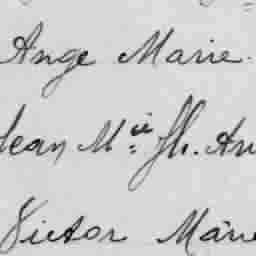 Ange Marie.
Jean M.ie fh. An
Victor Marie